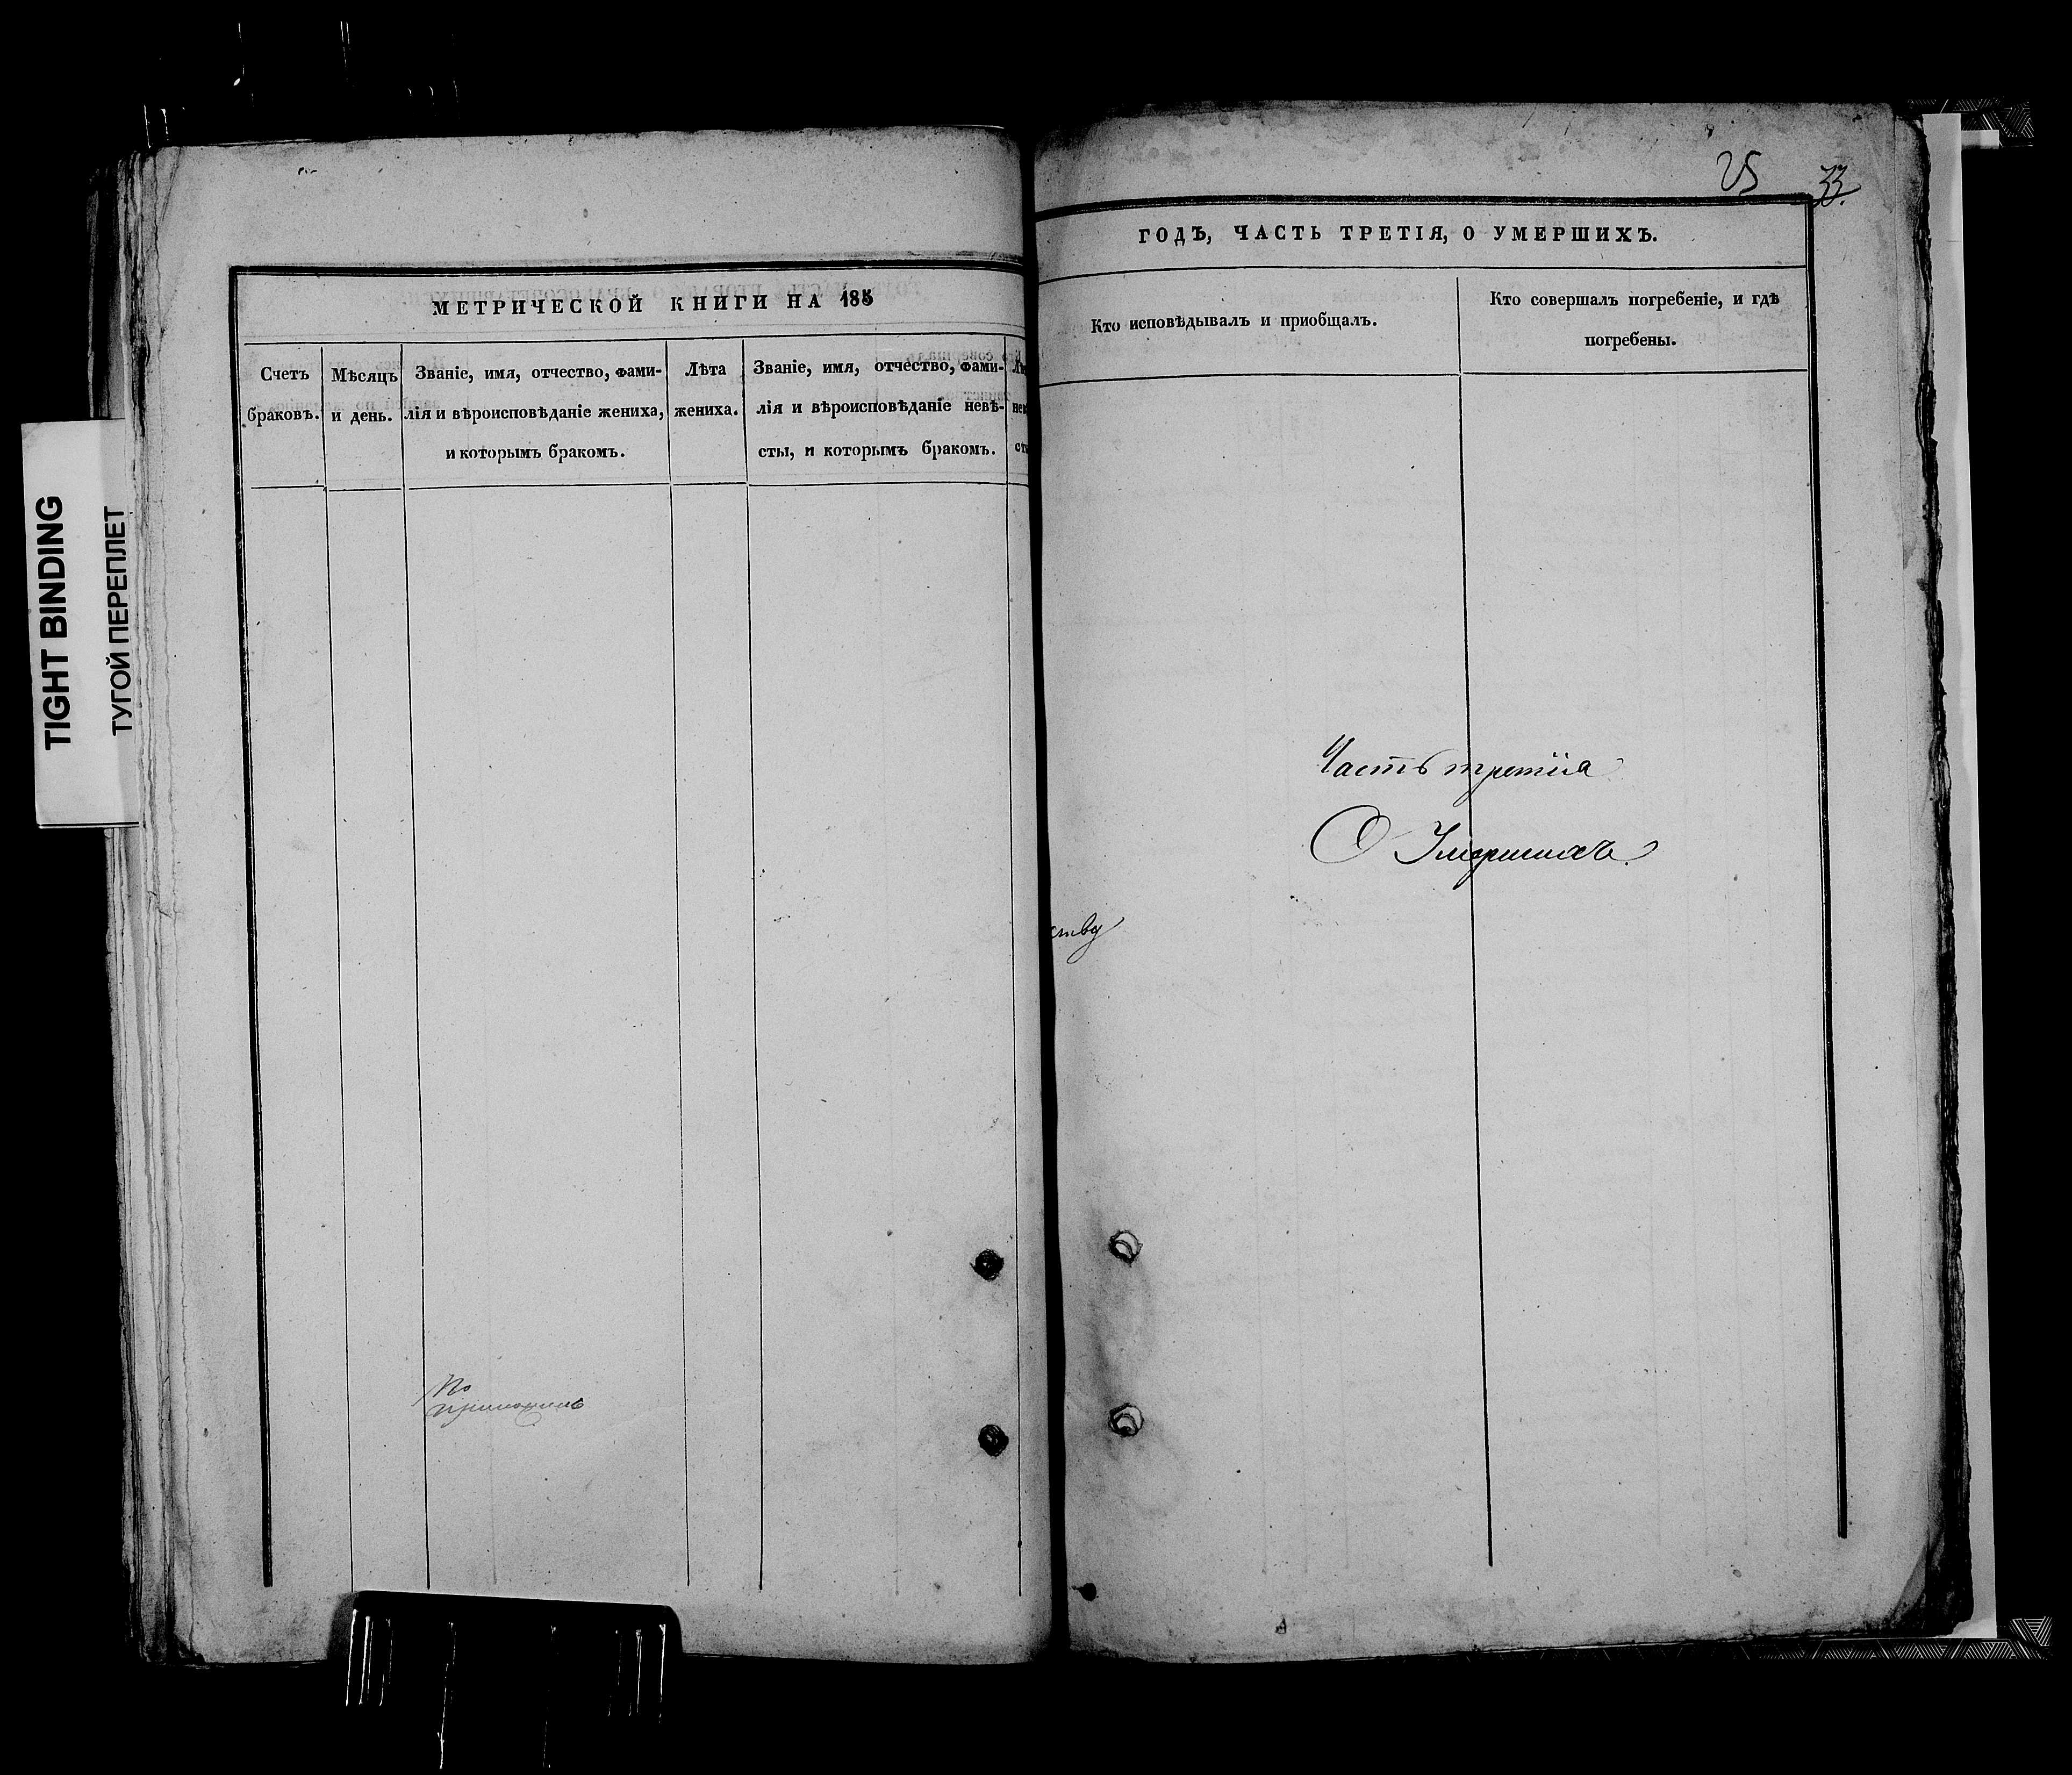 TIGHT BINDING
ТУГОЙ ПЕРЕПЛЕТ
МЕТРИЧЕСКОЙ КНИГИ НА 185
Счетъ
браковъ.
Мѣсяцъ
и день.
Званіе, имя, отчество, фами-
лія и вѣроисповѣданіе жениха,
и которымъ бракомъ.
Лѣта
жениха.
Званіе, имя, отчество, фами-
лія и вѣроисповѣданіе невѣ-
сты, и которымъ бракомъ.
По
25 33.
ГОДЪ, ЧАСТЬ ТРЕТІЯ, О УМЕРШИХЪ.
Кто исповѣдывалъ и пріобщалъ.
Кто совершалъ погребеніе, и гдѣ
погребены.
Часть третіяя
О Умершихъ.
ству